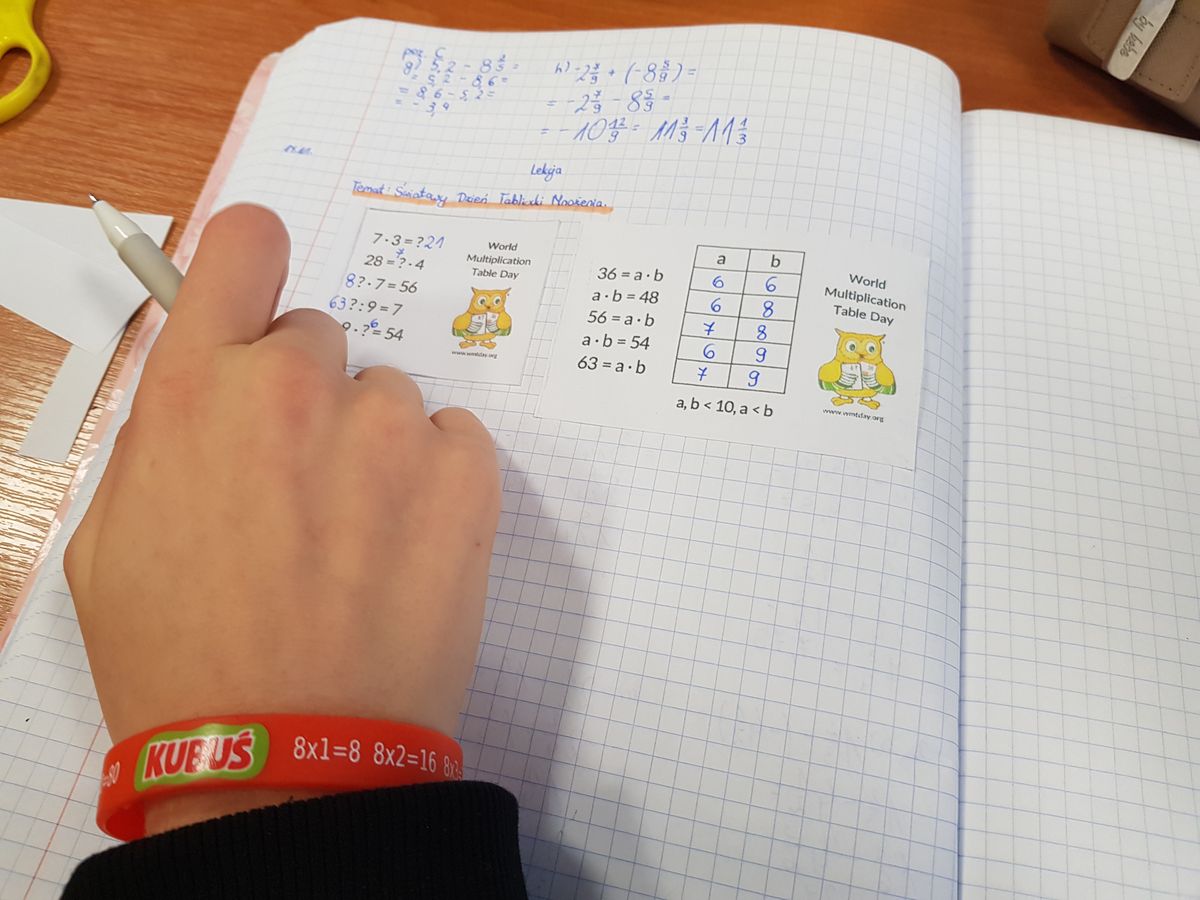 8) 5,2 - 8 3/5 =
= 5,2 - 8,6 =
= 8,6 - 5,2 =
= - 3,4
h) -2 7/9 + (-8 5/9) =
= -2 7/9 - 8 5/9 =
= -10 12/9 = 11 3/9 = 11 1/3
Lekcja
Temat: Światowy Dzień Tabliczki Mnożenia.
7 · 3 = ? 21
28 = ? · 4 7
8 ? · 7 = 56
63 ? : 9 = 7
9 · ? = 54 6
World
Multiplication
Table Day
www.wmtday.org
36 = a · b
a · b = 48
56 = a · b
a · b = 54
63 = a · b
a b
6 6
6 8
7 8
6 9
7 9
a, b < 10, a < b
World
Multiplication
Table Day
www.wmtday.org
KUBUŚ 8x1=8 8x2=16